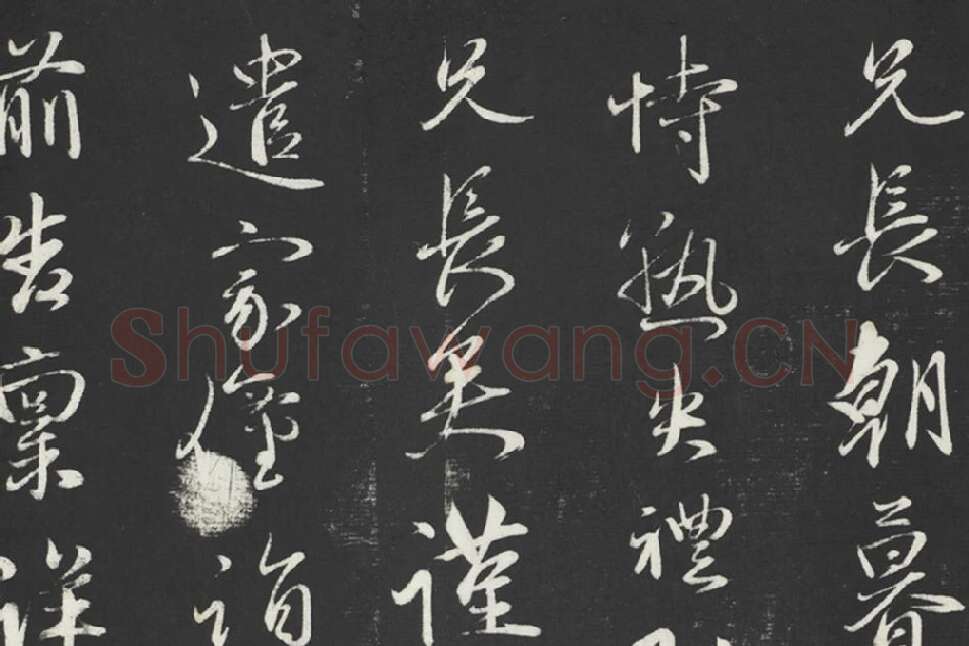 兄長朝暮
恃熟失禮
兄長果謹
遣家僮詣
前告稟詳
Shufawang.CN